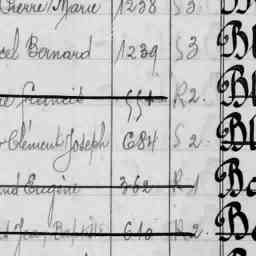 Pierre Marie 1238 S3. B
Bernard 1239 S3 Bl
Francis 554 R2. Bl
Clément Joseph 684 S2. Bl
Eugène 362 R1 Bo
Baptiste 610 R2. Bo